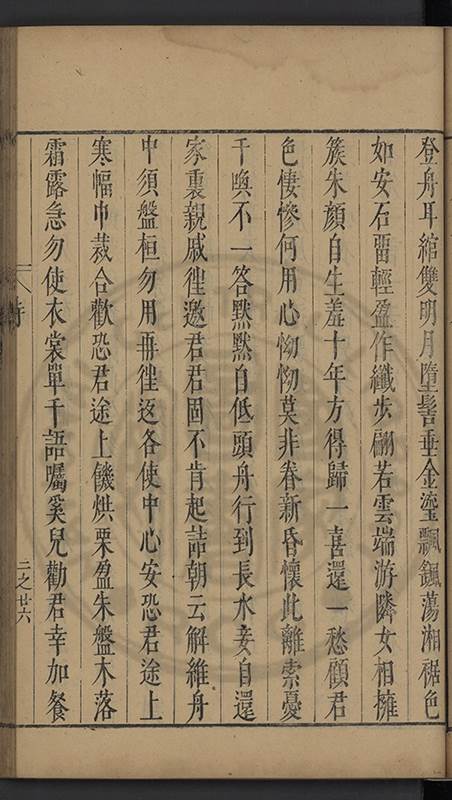 登舟耳綰雙明月墮髻垂金瓔飄颻蕩湘裾色
如安石畱輕盈作纖步翩若雲端游隣女相擁
簇朱顏自生羞十年方得歸一喜還一愁顧君
色悽慘何用心怮怮莫非眷新昏懷此離索憂
千喚不一答默默自低頭舟行到長水妾自還
家裏親戚徃邀君君固不肯起詰朝云解維舟
中須盤桓勿用再徃返各使中心安恐君途上
寒幅巾裁合歡恐君途上饑烘栗盈朱盤木落
霜露急勿使衣裳單千語囑奚兒勸君幸加餐
詩
二之廿六